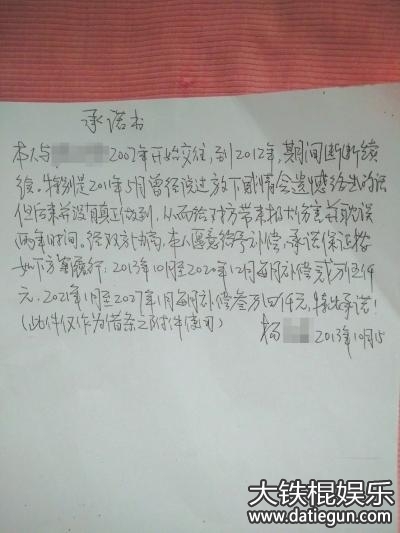 承诺书
本人与 2007年开始交往,到2012年,期间断断续
续。特别是2011年5月曾经说过放下感情会遗憾终生的话
但后来并没有真正做到,从而给对方带来极大伤害并耽误
两年时间。经双方计商,本人愿意给予补偿,承诺保证按
如下方案履行:2013年10月至2020年12月每月补偿贰万伍仟
元,2021年1月至2027年1月每月补偿叁万四仟元,特此承诺!
(此件仅作为借条之附件使用) 杨 2013年10月15
大铁棍娱乐
www.datiegun.com